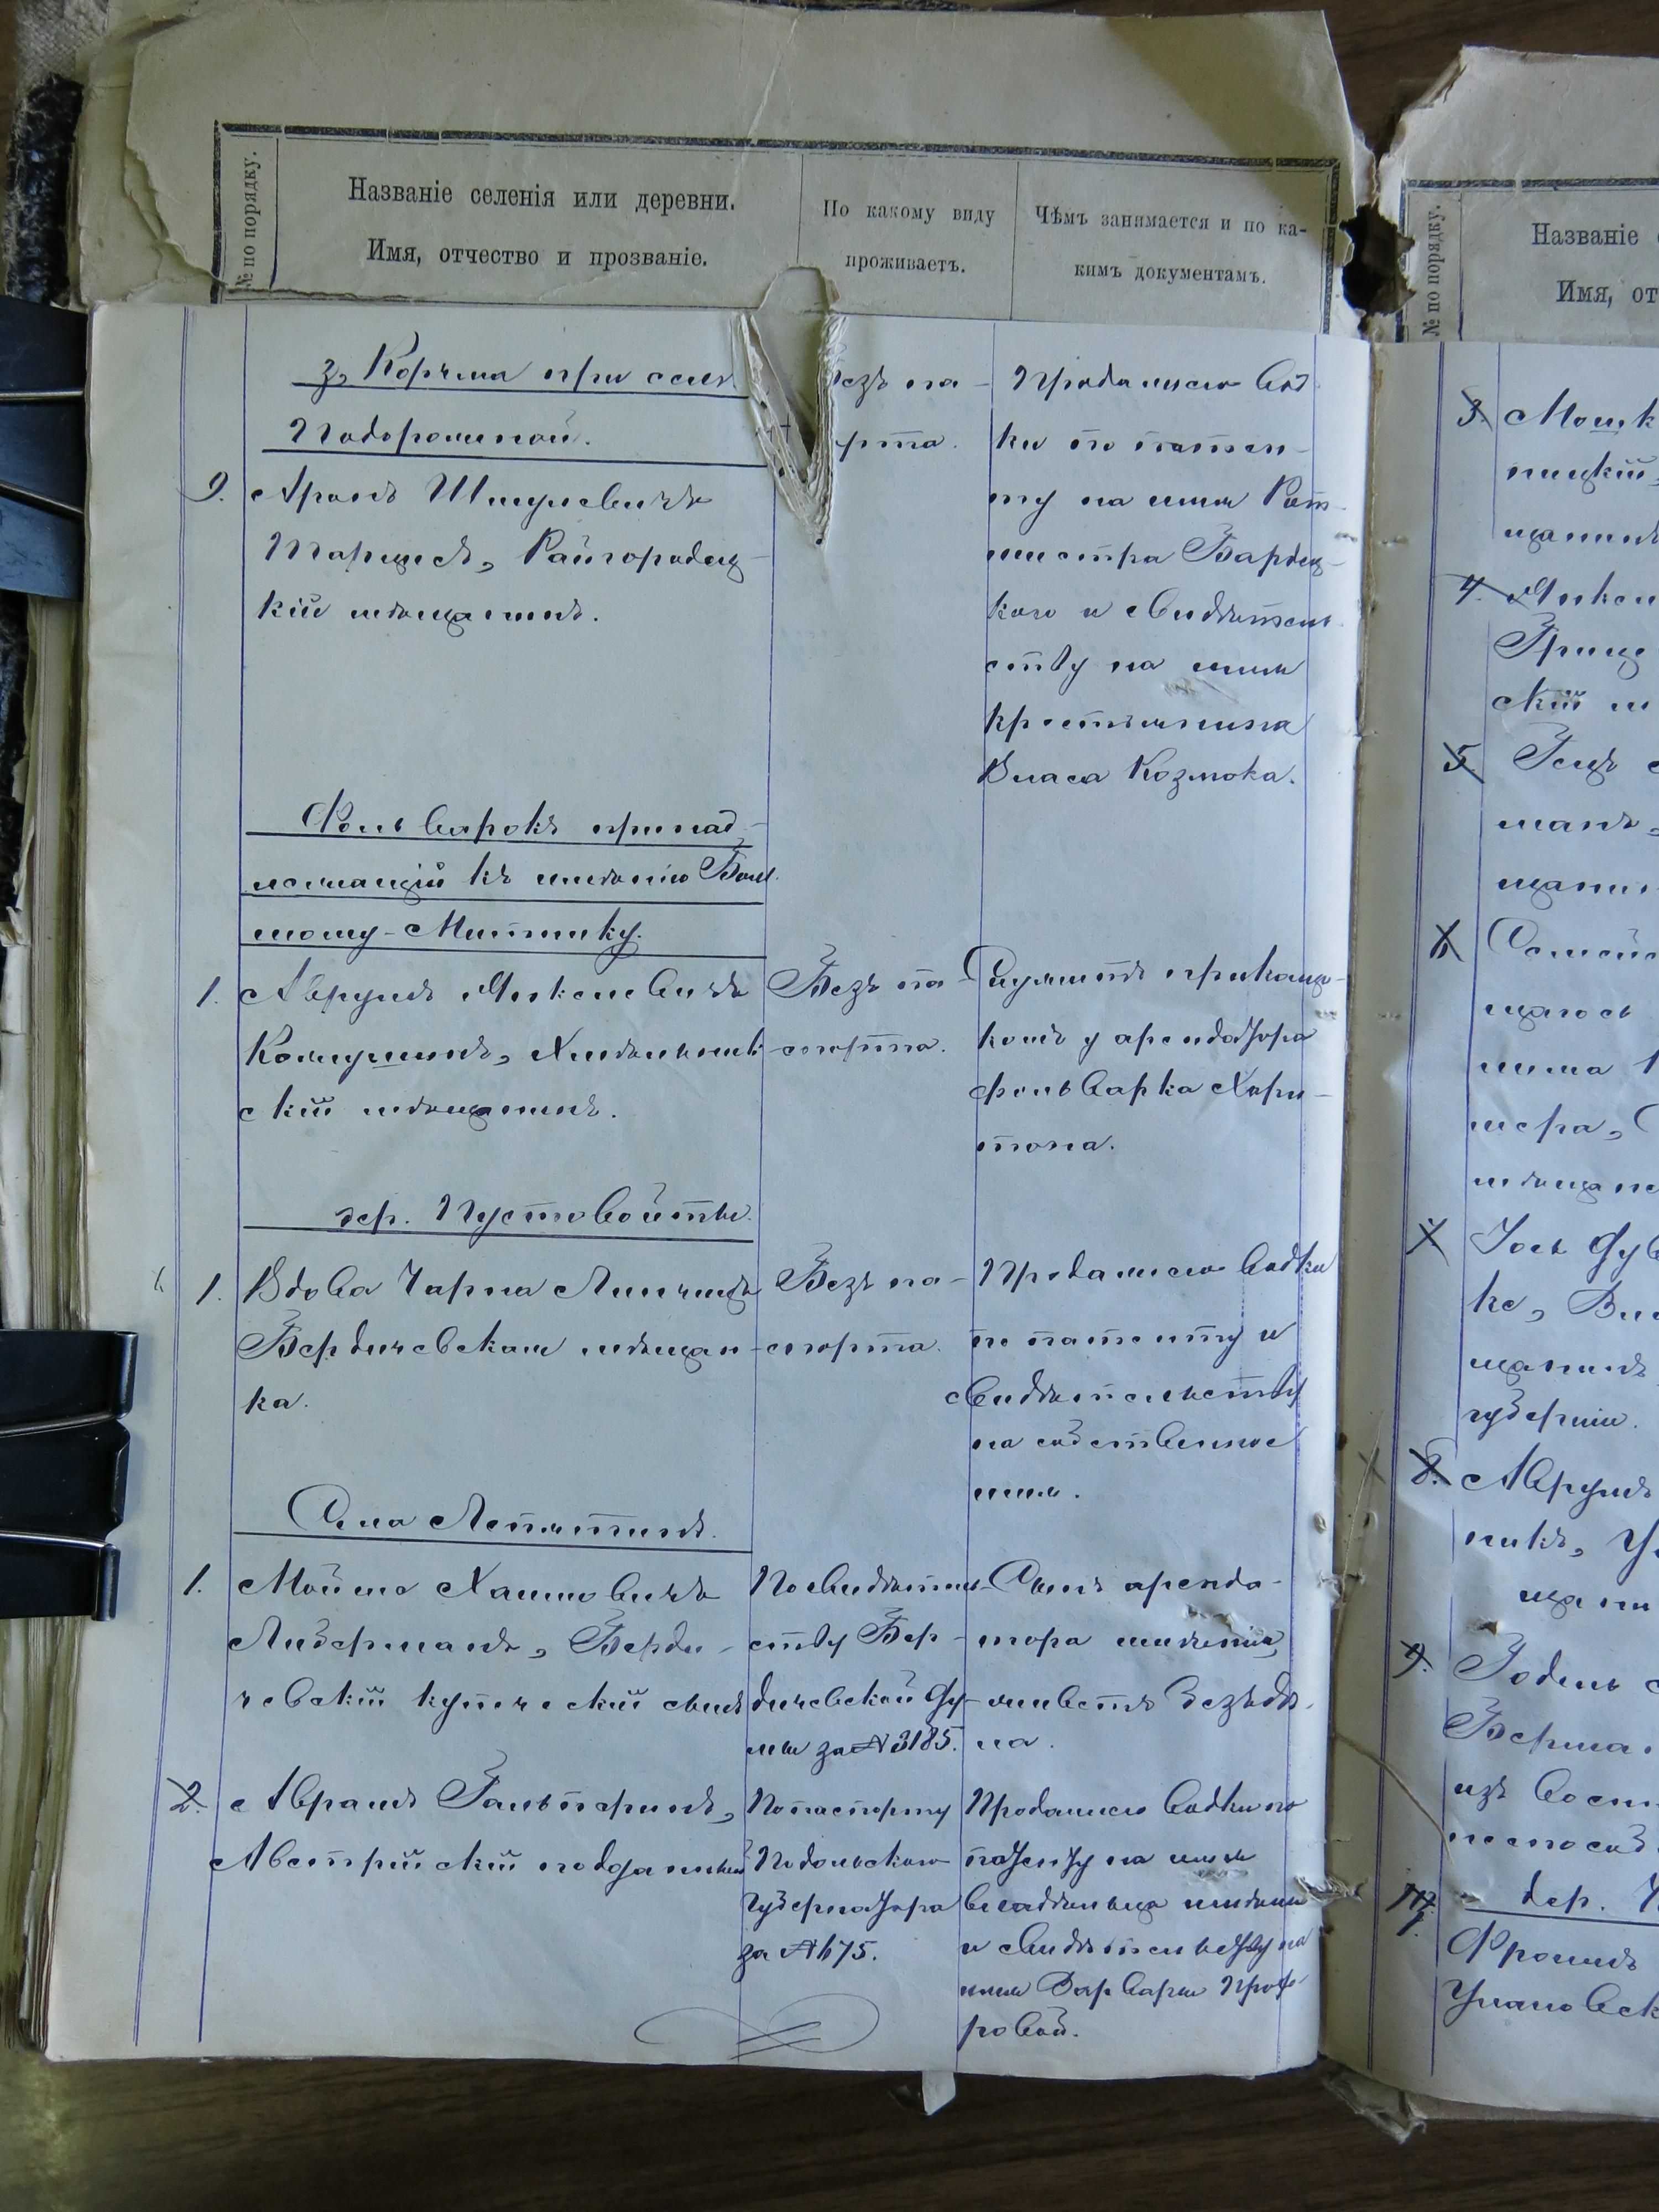 № по порядку.
Названіе селенія или деревни.
Имя, отчество и прозваніе.
По какому виду
проживаетъ.
Чѣмъ занимается и по ка-
кимъ документамъ.
з, Корчма при селѣ
Подорожной.
9. Аронъ Шмулевичъ
Таршисъ, Райгородец-
кій мѣщанинъ.
безъ па-
рта.
Продажею вод-
ки по патен-
ту на имя Рот-
мистра Бардец-
каго и свидѣтель-
ству на имя
крестьянина
Власа Козмока.
Фольварокъ принад-
лежащій къ имѣнію Боль-
шому-Митнику.
1. Аврумъ Янкелевичъ
Кожушанъ, Хмѣльник-
скій мѣщанинъ.
Безъ па-
спорта.
Служитъ прикащи-
комъ у арендатора
фольварка Хари-
тона.
дер. Пустовойты.
1. Вдова Чарна Линчицъ
Бердичевская мѣщан-
ка.
Безъ па-
спорта.
Продажею водки
по патенту и
свидѣтельству
на собственное
имя.
Село Летятинъ.
1. Мойше Хаимовичъ
Либерманъ, Берди-
чевскій купеческій сынъ
По свидѣтель-
ству Бер-
дичевской Ду-
мы за № 3185.
Сынъ аренда-
тора имѣнія,
живетъ безъ дѣ-
ла.
2. Аврамъ Гальперинъ,
Австрійскій подданный
По паспорту
Подольскаго
Губернатора
за № 675.
Продажею водки по
патенту на имя
владѣльца имѣнія
и свидѣтельству на
имя Варвары
ровой.
№ по порядку.
Названіе
Имя, от
3. Мошк
ницкій,
щанинъ
4. Янкел
Гриц
скій м
5. Гецъ
манъ,
щанин
6. Семей
щагося
нима
мера,
мѣщане
7. Іось Дув
ке, Вин
щанинъ
губерніи.
8. Аврумъ
никъ,
щани
9. Годель
Берма
изъ
неспособ
дер.
1. Фроимъ
Улановск